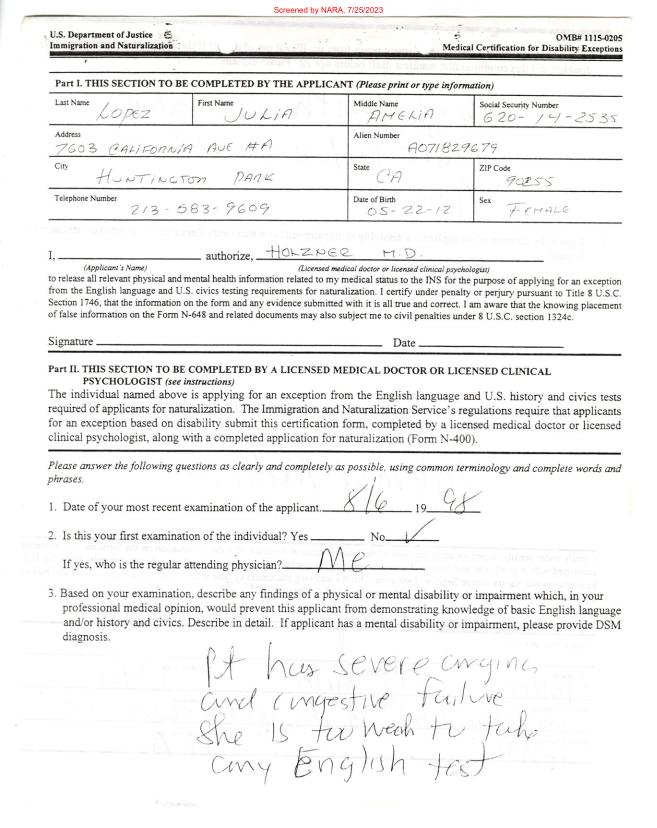 Screened by NARA, 7/25/2023
U.S. Department of Justice OMB# 1115-0205
Immigration and Naturalization Medical Certification for Disability Exceptions
Part I. THIS SECTION TO BE COMPLETED BY THE APPLICANT (Please print or type information)
Last Name First Name Middle Name Social Security Number
LOPEZ JULIA AMELIA 620-14-2535
Address Alien Number
7603 CALIFORNIA AVE #A A071829679
City State ZIP Code
HUNTINGTON PARK CA 90255
Telephone Number Date of Birth Sex
213-583-9609 05-22-12 FEMALE
I, authorize, HOLZNER M.D.
(Applicant's Name) (Licensed medical doctor or licensed clinical psychologist)
to release all relevant physical and mental health information related to my medical status to the INS for the purpose of applying for an exception
from the English language and U.S. civics testing requirements for naturalization. I certify under penalty or perjury pursuant to Title 8 U.S.C.
Section 1746, that the information on the form and any evidence submitted with it is all true and correct. I am aware that the knowing placement
of false information on the Form N-648 and related documents may also subject me to civil penalties under 8 U.S.C. section 1324c.
Signature Date
Part II. THIS SECTION TO BE COMPLETED BY A LICENSED MEDICAL DOCTOR OR LICENSED CLINICAL
PSYCHOLOGIST (see instructions)
The individual named above is applying for an exception from the English language and U.S. history and civics tests
required of applicants for naturalization. The Immigration and Naturalization Service's regulations require that applicants
for an exception based on disability submit this certification form, completed by a licensed medical doctor or licensed
clinical psychologist, along with a completed application for naturalization (Form N-400).
Please answer the following questions as clearly and completely as possible, using common terminology and complete words and
phrases.
1. Date of your most recent examination of the applicant. 8/6 19 98
2. Is this your first examination of the individual? Yes No ✓
If yes, who is the regular attending physician? Me
3. Based on your examination, describe any findings of a physical or mental disability or impairment which, in your
professional medical opinion, would prevent this applicant from demonstrating knowledge of basic English language
and/or history and civics. Describe in detail. If applicant has a mental disability or impairment, please provide DSM
diagnosis.
Pt has severe angina
and congestive failure
She is too weak to take
any English test